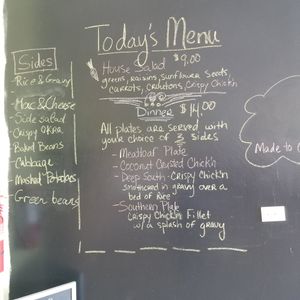 Today's Menu
House Salad $9.00
greens, raisins, sunflower seeds,
carrots, crutons, Crispy Chick'n
Dinner $14.00
All plates are served with
your choice of 2 sides
- Meatloaf Plate
- Coconut Crusted Chick'n
- Deep South - Crispy Chick'n
smothered in gravy over a
bed of rice
- Southern Plate
Crispy Chick'n Fillet
w/ a splash of gravy
Sides
- Rice & Gravy
- Mac & Cheese
- Side Salad
- Crispy OKRA
- Baked Beans
- Cabbage
- Mashed Potatoes
- Green beans
Made to